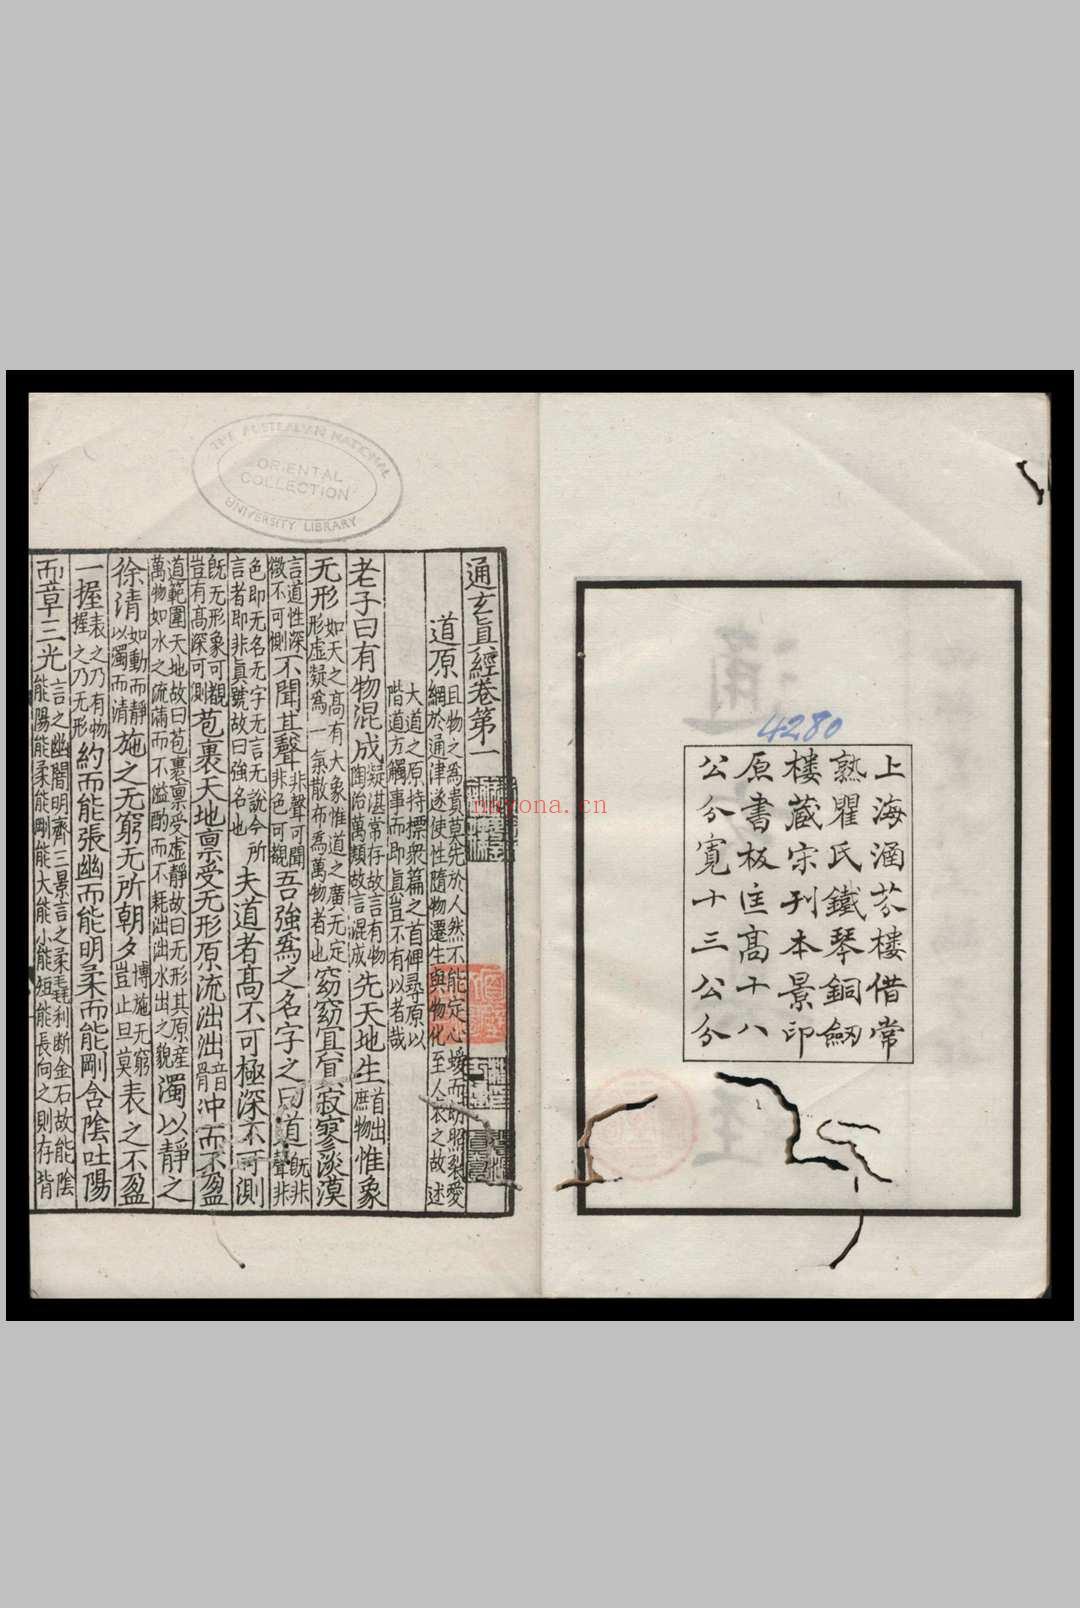 4280
上海涵芬樓借常
熟瞿氏鐵琴銅劒
樓藏宋刊本景印
原書板匡高十八
公分寬十三公分
THE AUSTRALIAN NATIONAL
UNIVERSITY LIBRARY
ORIENTAL
COLLECTION
nayona.cn
通玄眞經卷第一
道原 且物之爲貴莫先於人然不能定心 而 愛
網於通津遂使性隨物遷生與物化至人 之故述
大道之原持標衆篇之首俾尋原以
階道方觸事而即眞豈不有以者哉
老子曰有物混成 凝湛常存故言有物
陶冶萬類故言混成 先天地生 首出
庶物 惟象
无形 如天之高有大象惟道之廣无定
形虛凝爲一氣散布爲萬物者也 窈窈冥冥寂寥淡漠
言道性深
微不可測 不聞其聲 非聲可聞
非色可觀 吾強爲之名字之曰道 旣非
聲非
色即无名无字无言无說今所
言者即非眞號故曰強名也 夫道者高不可極深不可測
旣无形象可觀
豈有高深可測 苞裹天地禀受无形原流泏泏 音
骨 冲而不盈
道範圍天地故曰苞裹禀受虛靜故曰无形其原産
萬物如水之流滿而不溢酌而不耗泏泏水出之貌 濁以靜之
徐清 如動而靜
以濁而清 施之无窮无所朝夕 博施无窮
豈止旦莫 表之不盈
一握 表之乃有物
握之乃无形 約而能張幽而能明柔而能剛含陰吐陽
而章三光 言之幽闇明齊三景言之柔毳利斷金石故能陰
能陽能柔能剛能大能小能短能長向之則存背